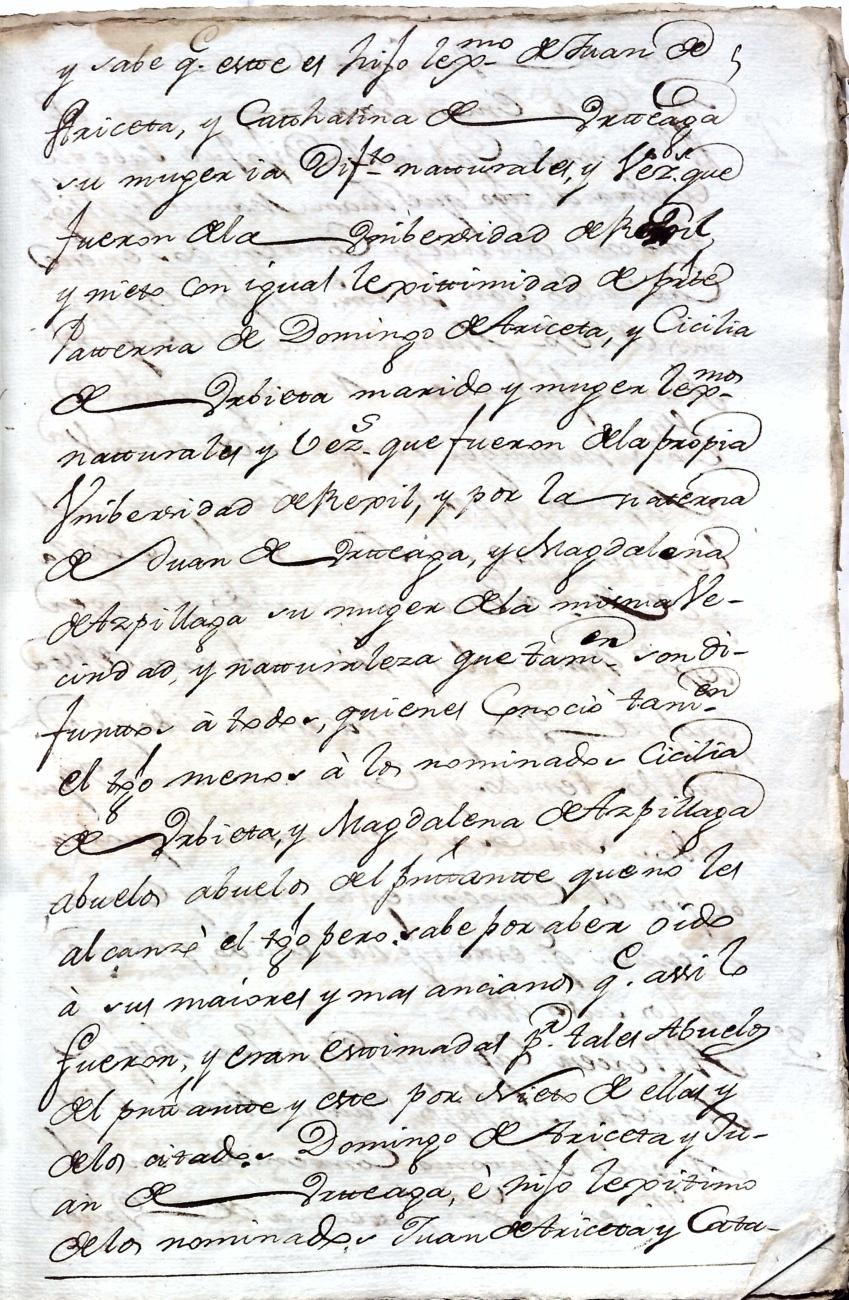 y sabe q.e este es hijo lexmo de Juan de
Ariceta, y Catthalina de Vrtteaga
su muger ia Difto natturales, y Vez.os que
fueron de la Vnibersidad de Rexil
y nieto con igual lexittimidad de prte
Patterna de Domingo de Ariceta, y Cicilia
de Vrbieta marido y muger lexmos
natturales y Vez.s que fueron de la propia
Vnibersidad de Rexil, y por la materna
de Juan de Vrtteaga, y Magdalena
de Azpillaga su muger de la misma Ve-
cindad, y natturaleza que tamen son di-
funttos à todos, quienes Conociò tamen
el tgo menos à los nominados Cicilia
de Vrbieta, y Magdalena de Azpillaga
abuelos abuelos del prttantte que no les
alcanzò el tgo pero sabe por aber oido
à sus maiores y mas ancianos q.e assi lo
fueron, y eran esttimadas pr. tales Abuelos
del prttantte y este por Nieto de ellas y
de los citados Domingo de Ariceta y Ju-
an de Vrtteaga, è hijo lexitimo
de los nominados Juan de Ariceta y Cata-